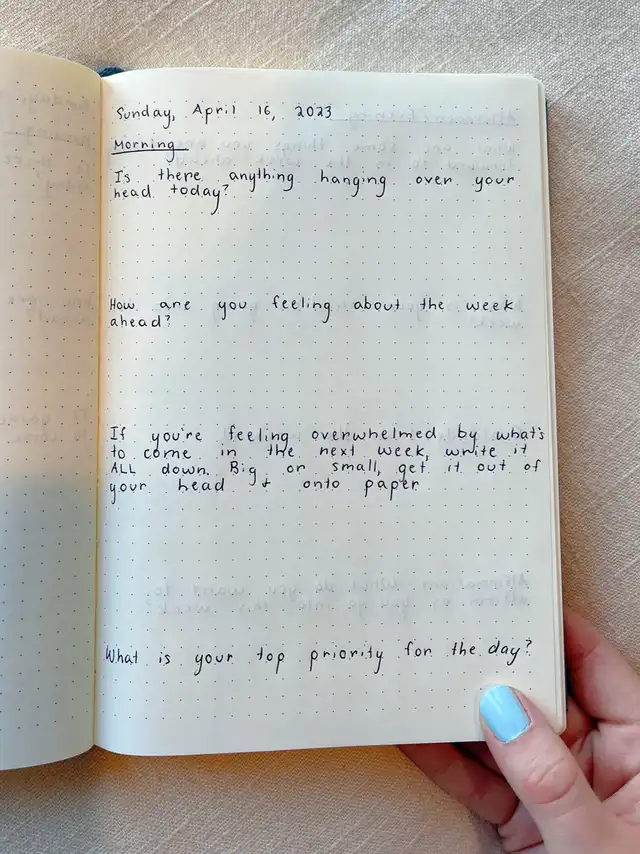 Sunday, April 16, 2023
Morning
Is there anything hanging over your
head today?
How are you feeling about the week
ahead?
If you're feeling overwhelmed by what's
to come in the next week, write it
ALL down. Big or small, get it out of
your head & onto paper
What is your top priority for the day?